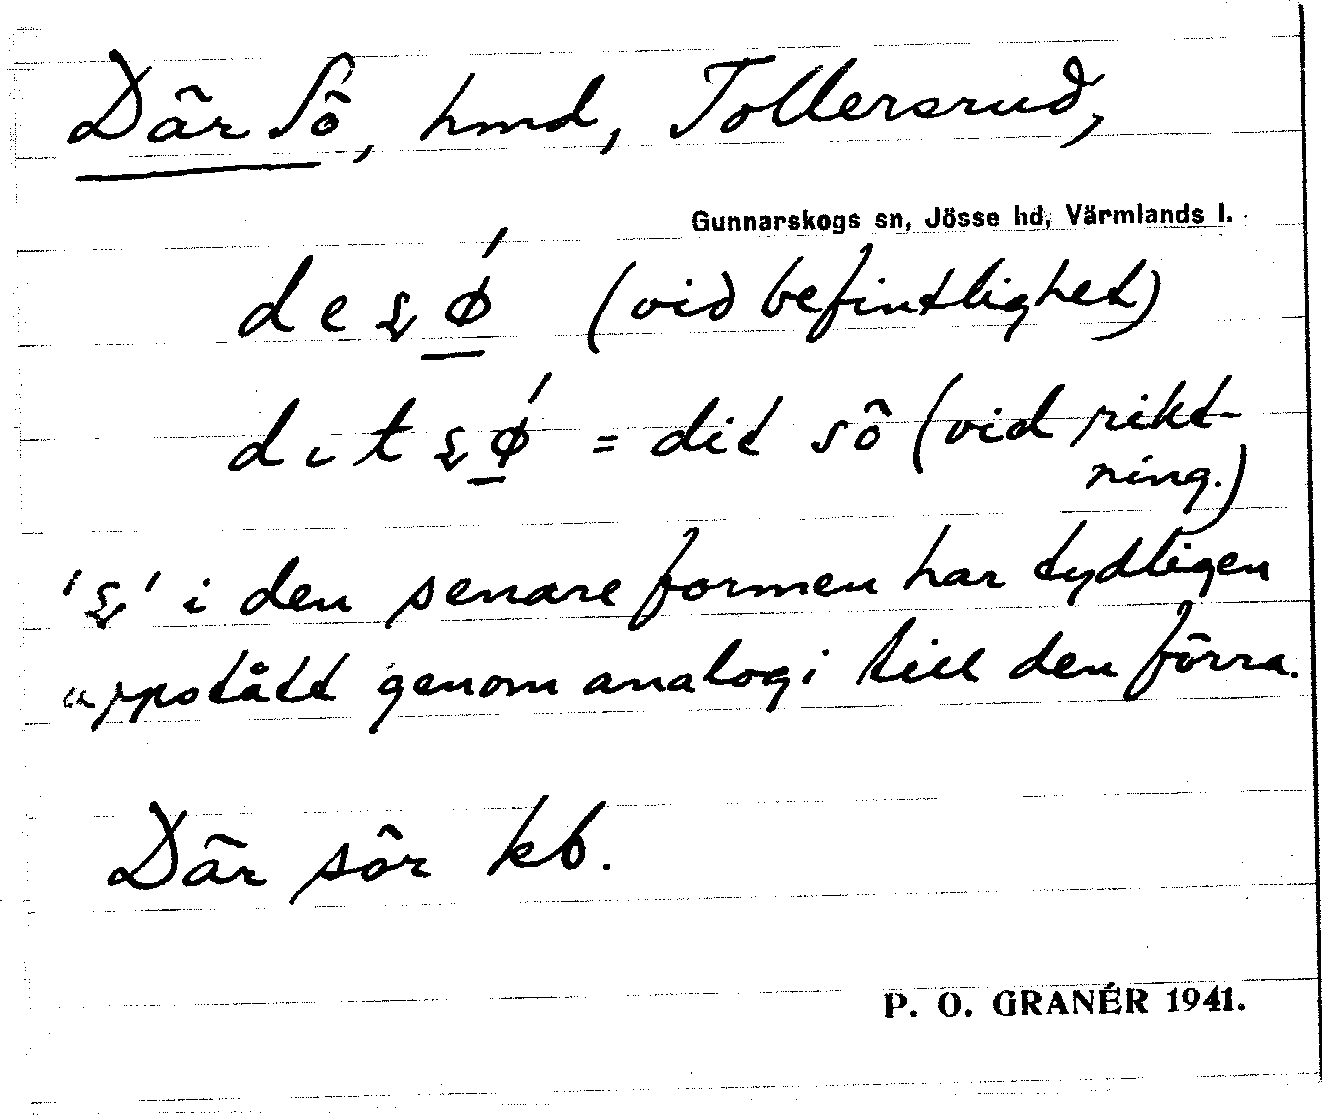 Där Sö, hmd, Tollersrud,
Gunnarskogs sn, Jösse hd, Värmlands l.
(vid befintlighet)
= dit sö (vid rikt-
ning.)
i den senare formen har tydligen
uppstått genom analogi till den förra.
Där sör kb.
P. O. GRANÉR 1941.